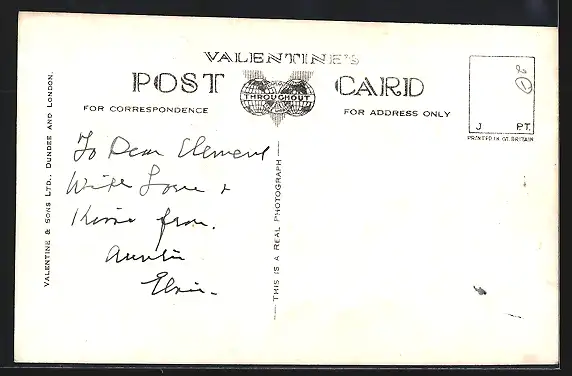 VALENTINE'S
POST CARD
THROUGHOUT
FOR CORRESPONDENCE
FOR ADDRESS ONLY
J PT.
PRINTED IN GT. BRITAIN
VALENTINE & SONS LTD., DUNDEE AND LONDON.
THIS IS A REAL PHOTOGRAPH
To Dear Clement
With Love &
Kisses from.
Auntie
Elsie-